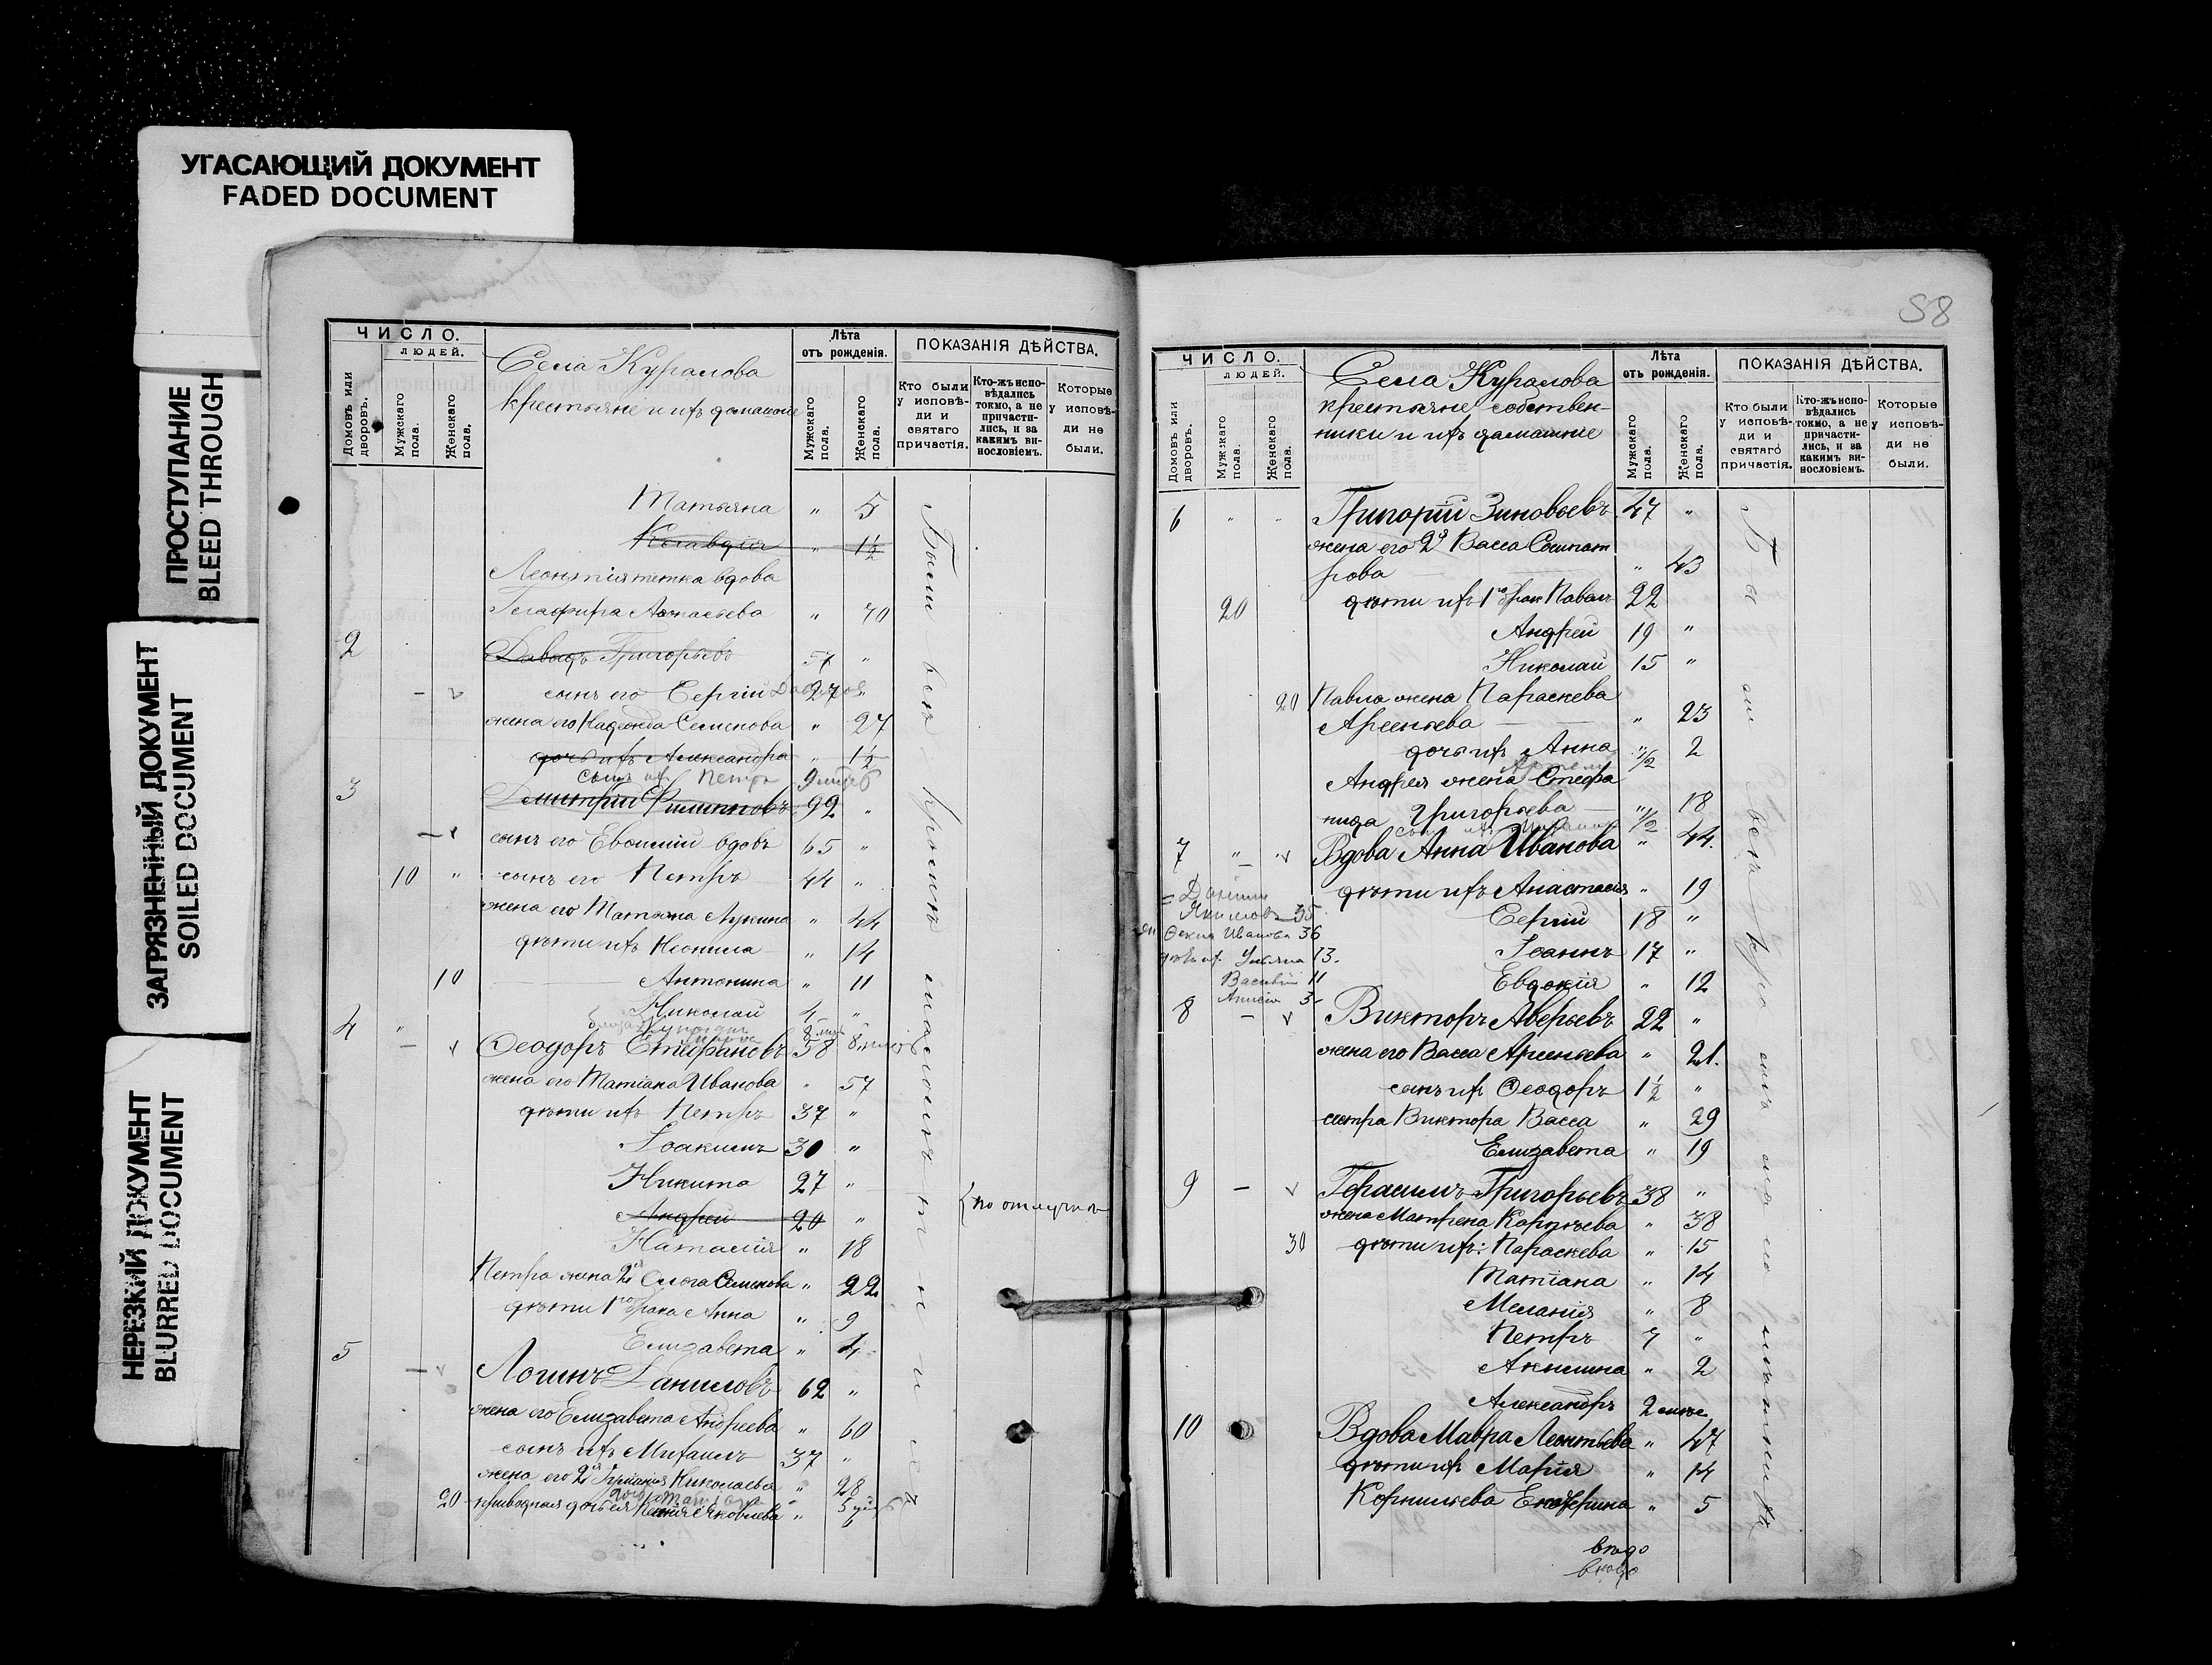 УГАСАЮЩИЙ ДОКУМЕНТ
FADED DOCUMENT
ПРОСТУПАНИЕ
BLEED THROUGH
ЗАГРЯЗНЕННЫЙ ДОКУМЕНТ
SOILED DOCUMENT
НЕРЕЗКИЙ ДОКУМЕНТ
BLURRED DOCUMENT
ЧИСЛО.
людей.
Домовъ или дворовъ.
Мужскаго пола.
Женскаго пола.
Села Куралова
крестьяне и ихъ домашніе
Лѣта
отъ рожденія.
Мужскаго пола.
Женскаго пола.
ПОКАЗАНІЯ ДѢЙСТВА.
Кто были у исповѣди и святаго причастія.
Кто-жъ исповѣдались токмо, а не причастились, и за какимъ винословіемъ.
Которые у исповѣди не были.
Матьяна " 5
Клавдія " 1½
Леонтія тетка вдова
Глафира " 70
2 Давыдъ Григорьевъ 57 "
сынъ его Сергій 27 "
жена его Надежда Семенова " 27
дочь ихъ Александра " 1½
сынъ ихъ Петръ
3 Димитрій Филипповъ 92 "
сынъ его Евѳимій вдовъ 65 "
10 " сынъ его Петръ 44 "
жена его Матьяна Лукина " 44
дѣти ихъ Неонила " 14
10 Антонина " 11
Николай 4 "
4 " Ѳеодоръ Стефановъ 58
жена его Матіана Иванова " 57
дѣти ихъ Петръ 37 "
Іоакимъ 30 "
Никита 27 "
Андрей 20 "
по отлучкѣ
Наталія " 18
Петра жена 2я Ольга Семенова " 22
дѣти 1го брака Анна " 9
Елизавета " 4
5 Логинъ Даниловъ 62 "
жена его Елизавета Андреева " 60
сынъ ихъ Михаилъ 37 "
жена его 2я Николаева " 28
20 приводная дочь ея Яковлева " 5
Были всѣ
58
ЧИСЛО.
людей.
Домовъ или дворовъ.
Мужскаго пола.
Женскаго пола.
Села Куралова
крестьяне собствен-
ники и ихъ домашніе
Лѣта
отъ рожденія.
Мужскаго пола.
Женскаго пола.
ПОКАЗАНІЯ ДѢЙСТВА.
Кто были у исповѣди и святаго причастія.
Кто-жъ исповѣдались токмо, а не причастились, и за какимъ винословіемъ.
Которые у исповѣди не были.
6 " " Григорій Зиновьевъ 47 "
жена его 2я Васса Сосипат
рова " 43
20 дѣти ихъ 1го брак Павелъ 22
Андрей 19 "
Николай 15 "
20 Павла жена Параскева
Арсеньева " 23
дочь ихъ Анна " 2
Андрея жена Стефа
нида Григорьева " 18
7 " Вдова Анна Иванова " 44.
дѣти ихъ Анастасія " 19
Сергій 18 "
Іоаннъ 17 "
Евдокія " 12
Иванова 36
Ульяна 13.
Василій 11
8 Викторъ Аверьевъ 22 "
жена его Васса Арсеньева " 21.
сынъ ихъ Ѳеодоръ 1½ "
сестра Виктора Васса " 29
Елизавета " 19
9 Герасимъ Григорьевъ 38 "
жена Матрена " 38
30 дѣти ихъ: Параскева " 15
Матіана " 14
Меланія " 8
Петръ 7 "
Акилина " 2
Александръ
10 Вдова Мавра Леонтьева " 47
дѣти их Марія " 14
Корнильева Екатерина " 5